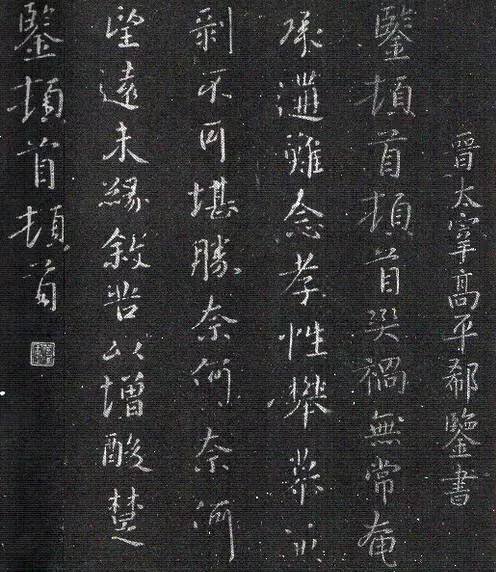 晉太宰高平郗鑒書
鑒頓首頓首災禍無常奄
承遘難念孝性攀慕
剝不可堪勝奈何奈何
望遠未緣敘苦以增酸楚
鑒頓首頓首